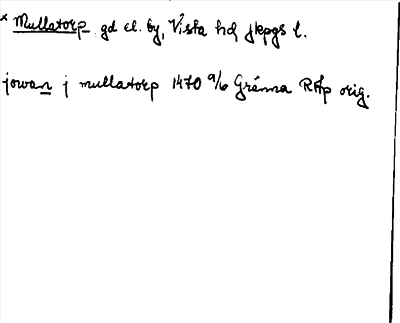 * Mullatorp gd el. by, Vista hd Jkpgs l.
jowan j mullatorp 1470 9/6 Gränna RAp orig.